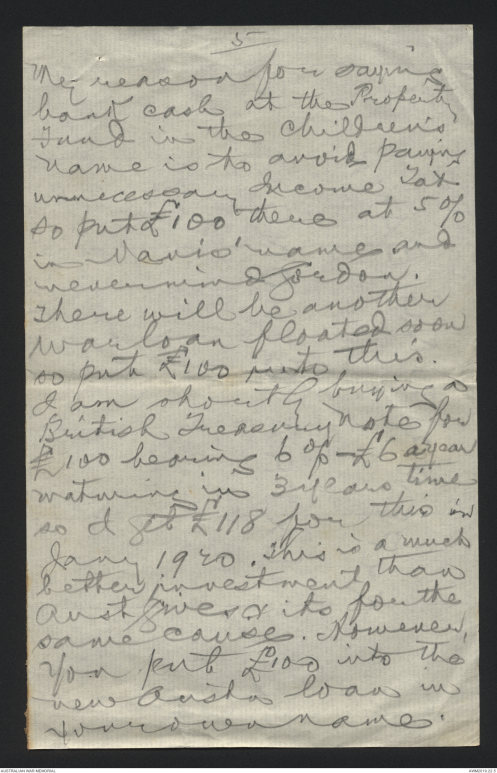 5
My reason for saying
bank cash at the Property
Fund in the Children's
name is to avoid paying
unnecessary Income Tax
so put £100 there at 5%
in Mavis' name and
nevermind Gordon.
There will be another
War loan floated soon
so put £100 into this.
I am shortly buying a
British Treasury Note for
£100 bearing 6% - £6 a year
maturing in 3 years time
so I get £118 for this in
Jany 1920. This is a much
better investment than
Aust gives & its for the
same cause. However,
You put £100 into the
new Austn loan in
your own name.
AUSTRALIAN WAR MEMORIAL